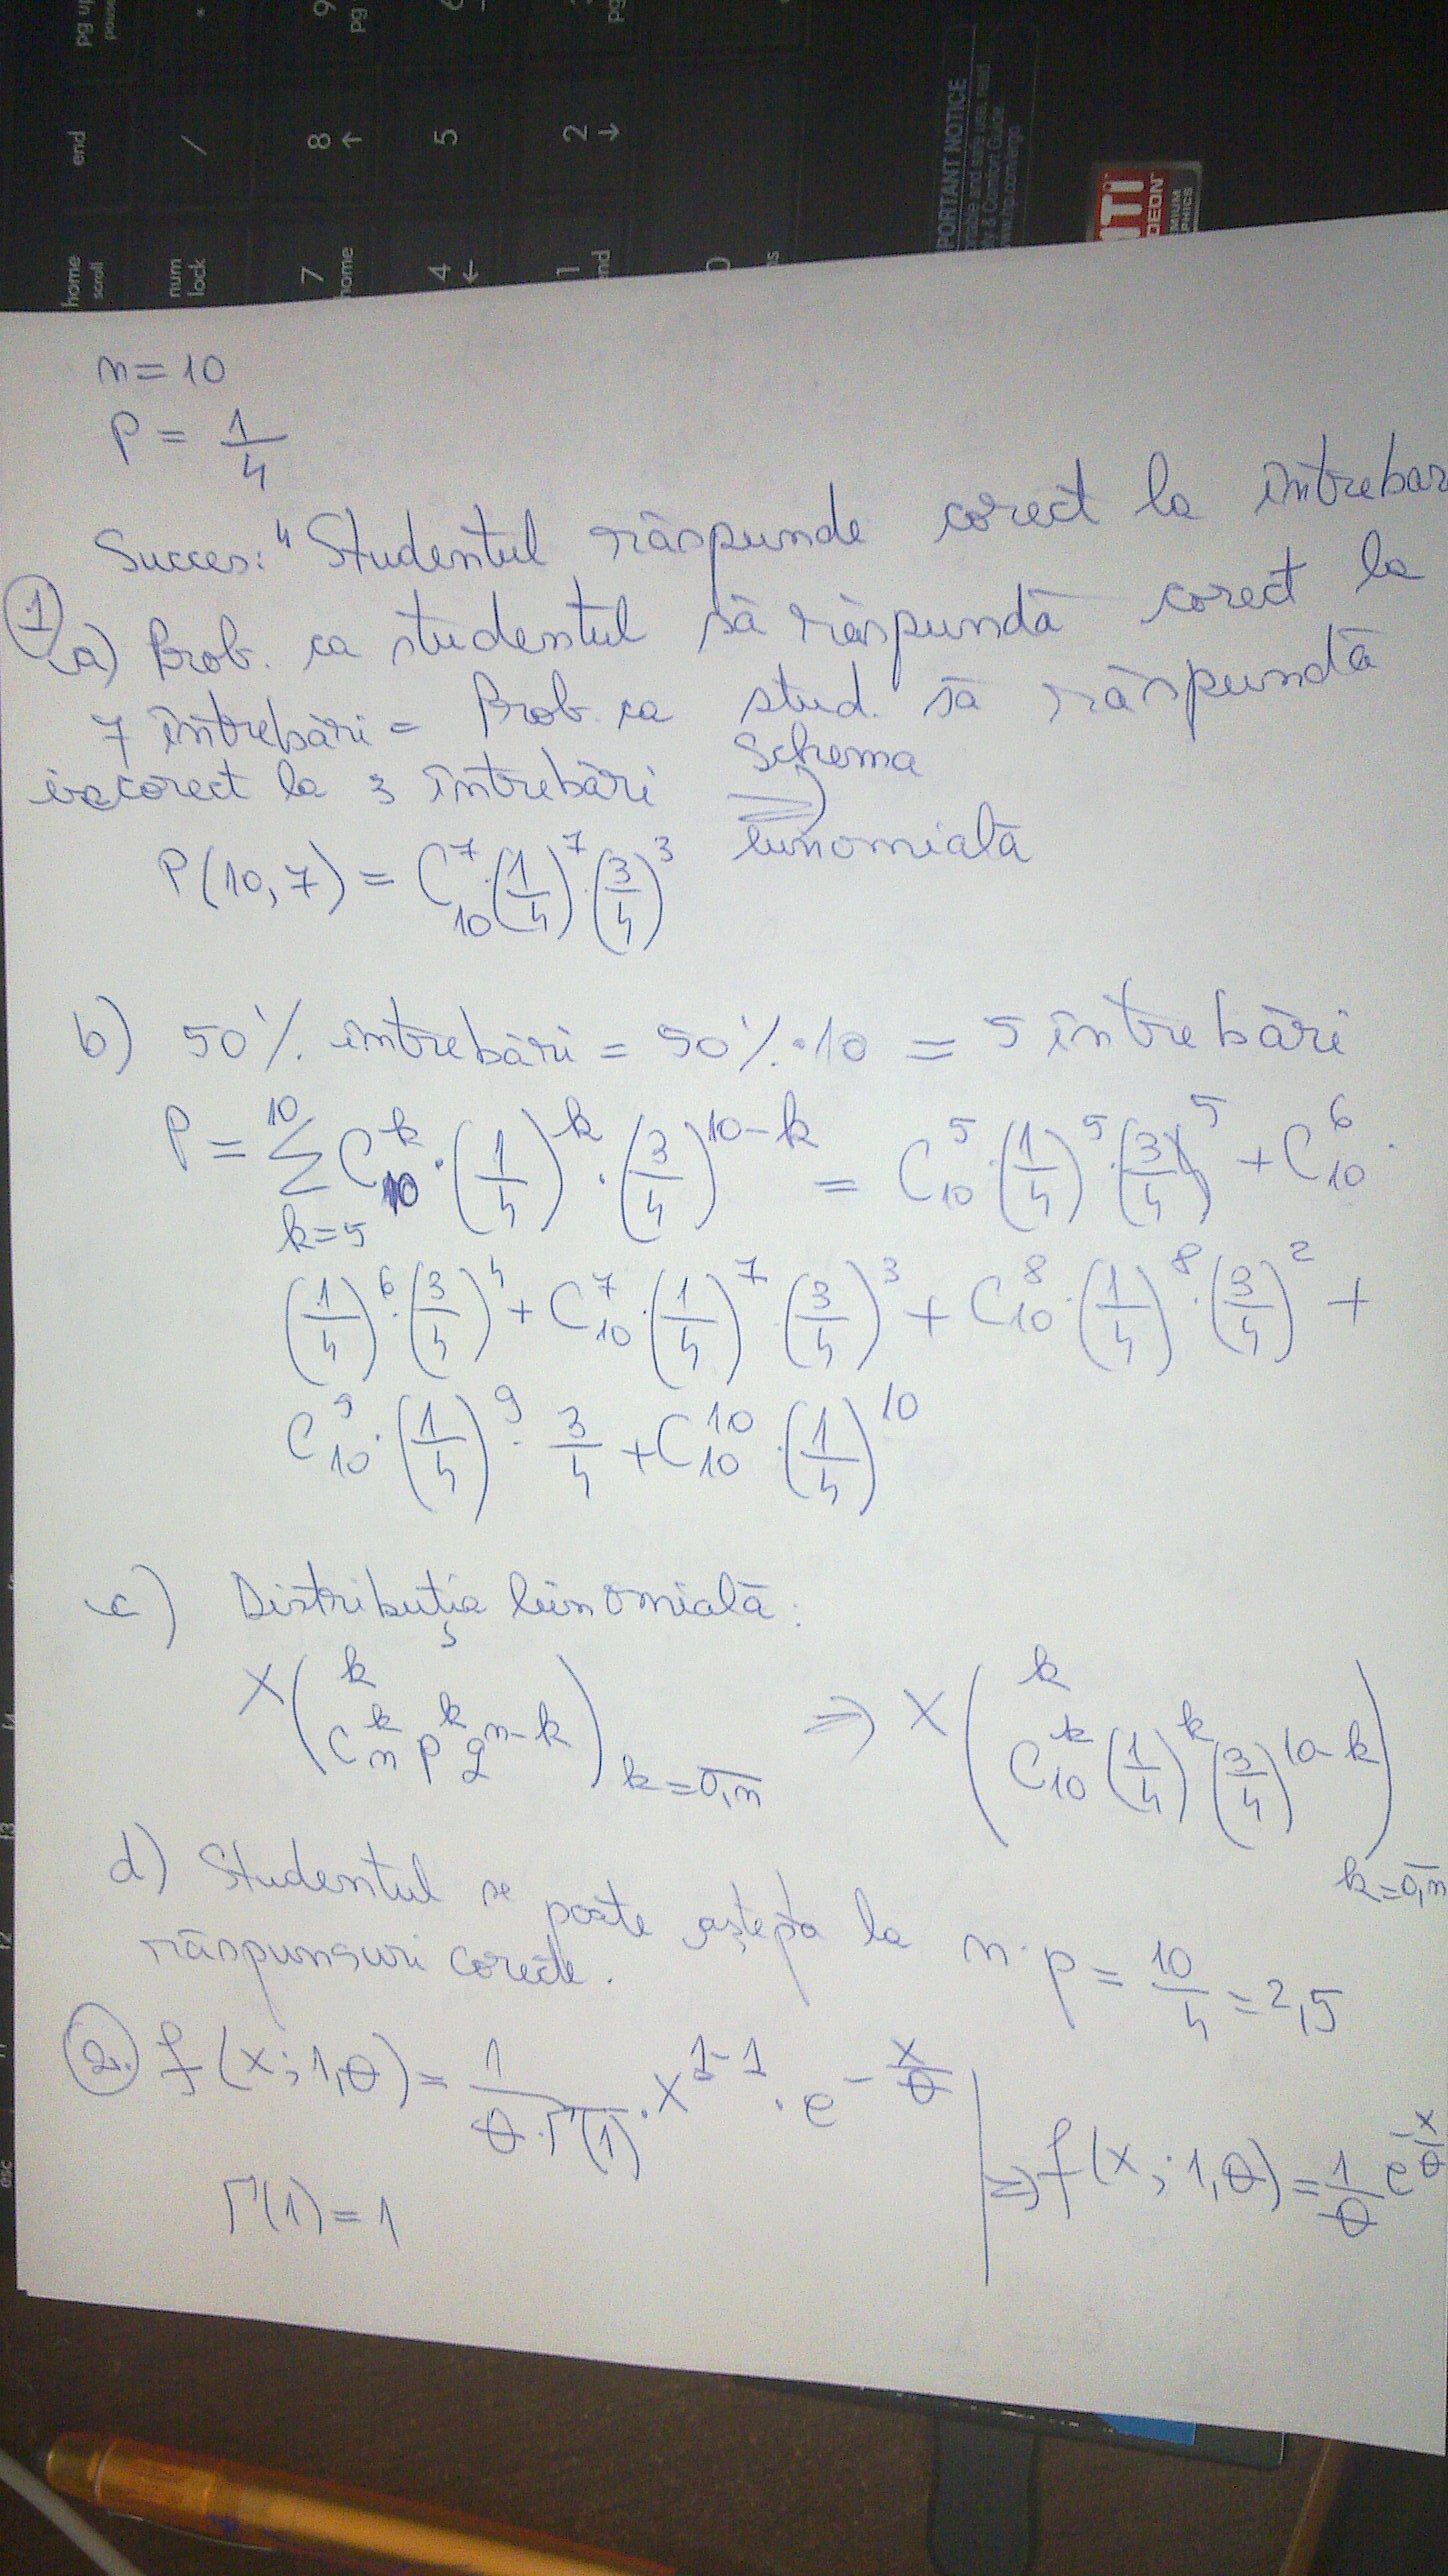 pg up
pause
*
9
pg
6
end
/
8
↑
5
2
↓
home
scroll
num
lock
7
home
4
←
1
end
PORTANT NOTICE
y & Comfort Guide
www.hp.com/ergo
ATI
DEON
MIUM
PHICS
n = 10
P = 1/4
Succes: "Studentul răspunde corect la întrebar
① a) Prob. ca studentul să răspundă corect la
7 întrebări = Prob. ca stud. să răspundă
incorect la 3 întrebări Schema ⇒ binomială
P(10,7) = C_10^7 · (1/4)^7 · (3/4)^3
b) 50% întrebări = 50% · 10 = 5 întrebări
P = Σ_{k=5}^{10} C_10^k · (1/4)^k · (3/4)^{10-k} = C_10^5 · (1/4)^5 · (3/4)^5 + C_10^6 ·
(1/4)^6 · (3/4)^4 + C_10^7 · (1/4)^7 · (3/4)^3 + C_10^8 · (1/4)^8 · (3/4)^2 +
C_10^9 · (1/4)^9 · 3/4 + C_10^10 · (1/4)^10
c) Distribuția binomială:
X (k / C_n^k p^k q^{n-k})_{k=0,n} ⇒ X (k / C_10^k (1/4)^k (3/4)^{10-k})_{k=0,n}
d) Studentul se poate aștepta la n · p = 10/4 = 2,5
răspunsuri corecte.
②. f(x; 1,θ) = 1/(θ·Γ(1)) · x^{1-1} · e^{-x/θ} | ⇒ f(x; 1,θ) = 1/θ e^{-x/θ}
Γ(1) = 1